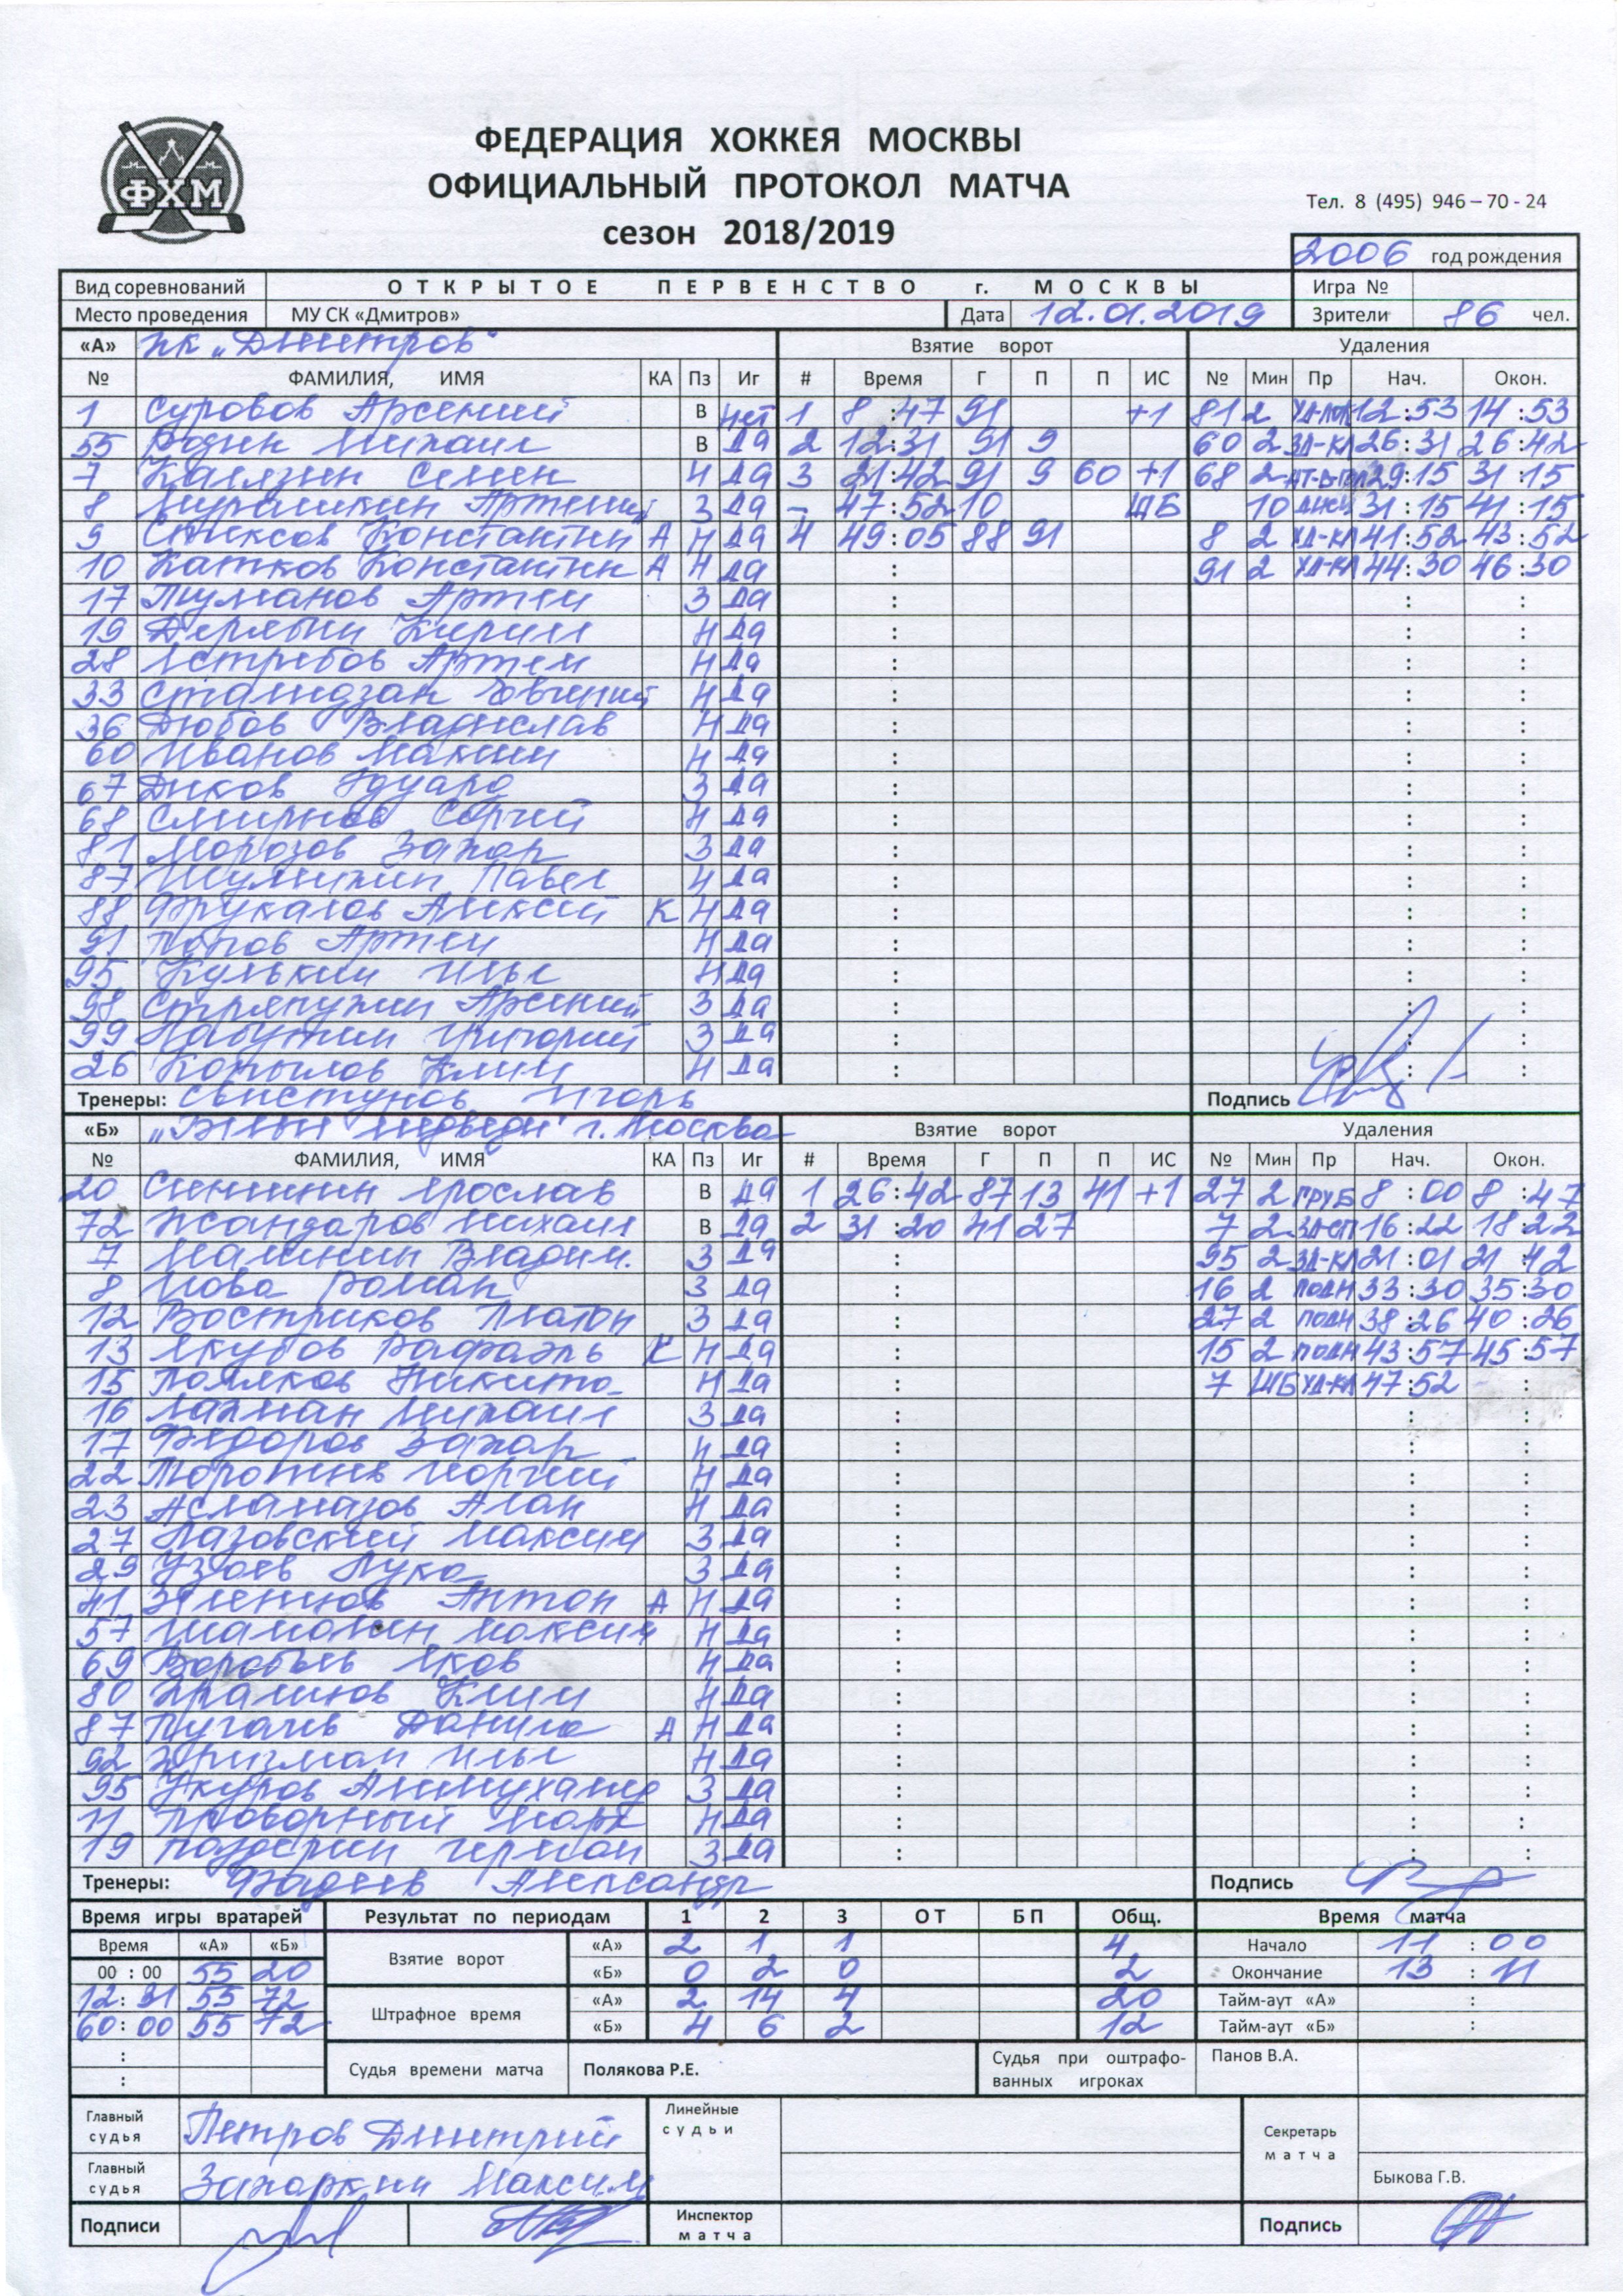 ФЕДЕРАЦИЯ ХОККЕЯ МОСКВЫ
ОФИЦИАЛЬНЫЙ ПРОТОКОЛ МАТЧА
сезон 2018/2019
ФХМ
Тел. 8 (495) 946-70-24
2006 год рождения
Вид соревнований ОТКРЫТОЕ ПЕРВЕНСТВО г. МОСКВЫ Игра №
Место проведения МУ СК «Дмитров» Дата 12.01.2019 Зрители 86 чел.
«А» ХК „Дмитров" Взятие ворот Удаления
№ ФАМИЛИЯ, ИМЯ КА Пз Иг # Время Г П П ИС № Мин Пр Нач. Окон.
1 Суровов Арсений В нет 1 8:47 91 +1 81 2 12:53 14:53
55 Родин Михаил В да 2 12:31 91 9 60 2 ЗД-КЛ 26:31 26:42
7 Калязин Семен Н да 3 21:42 91 9 60 +1 68 2 29:15 31:15
8 Мурашкин Артемий З да - 47:52 10 ШБ 10 31:15 41:15
9 Константин А Н да 4 49:05 88 91 8 2 УД-КЛ 41:52 43:52
10 Катков Константин А Н да 91 2 УД-КЛ 44:30 46:30
17 Туманов Артем З да
19 Дерябин Кирилл Н да
28 Ястребов Артем Н да
33 Стамидзан Евгений Н да
36 Дюбов Владислав Н да
60 Иванов Максим Н да
67 Диков Эдуард З да
68 Смирнов Сергей Н да
81 Морозов Захар З да
87 Шумихин Павел Н да
88 Фрукалов Алексей К Н да
91 Попов Артем Н да
95 Кулькин Илья Н да
98 Стряпухин Арсений З да
99 Лабутин Григорий З да
26 Копылов Клим Н да
Тренеры: Свистунов Игорь Подпись
«Б» „Белые медведи" г. Москва Взятие ворот Удаления
№ ФАМИЛИЯ, ИМЯ КА Пз Иг # Время Г П П ИС № Мин Пр Нач. Окон.
20 Синицин Ярослав В да 1 26:42 87 13 41 +1 27 2 ГРУБ 8:00 8:47
72 Жандаров Михаил В да 2 31:20 41 27 7 2 16:22 18:22
7 Малинин Владим. З да 95 2 ЗД-КЛ 21:01 21:42
8 Роман З да 16 2 ПОДН 33:30 35:30
12 Востриков Платон З да 27 2 ПОДН 38:26 40:26
13 Якубов Рафаэль К Н да 15 2 ПОДН 43:57 45:57
15 Поляков Никита Н да 7 ШБ УД-КЛ 47:52
16 Лахман Михаил З да
17 Федоров Захар Н да
22 Георгий Н да
23 Асламазов Алан Н да
27 Лазовский Максим З да
29 Узбев Лука З да
41 Зеленов Антон А Н да
57 Шамонин Максим Н да
69 Воробьев Яков Н да
80 Храмцов Клим Н да
87 Пугачев Данила А Н да
92 Фризман Илья Н да
95 Укуров Алимухамед З да
11 Проворный Марк Н да
19 Поздерин Герман З да
Тренеры: Фадеев Александр Подпись
Время игры вратарей Результат по периодам 1 2 3 ОТ БП Общ. Время матча
Время «А» «Б» Взятие ворот «А» 2 1 1 4 Начало 11:00
00:00 55 20 «Б» 0 2 0 2 Окончание 13:11
12:31 55 72 Штрафное время «А» 2 14 4 20 Тайм-аут «А» :
60:00 55 72 «Б» 4 6 2 12 Тайм-аут «Б» :
Судья времени матча Полякова Р.Е. Судья при оштрафо-ванных игроках Панов В.А.
Главный судья Петров Дмитрий Линейные судьи Секретарь матча
Главный судья Захаркин Максим Быкова Г.В.
Подписи Инспектор матча Подпись